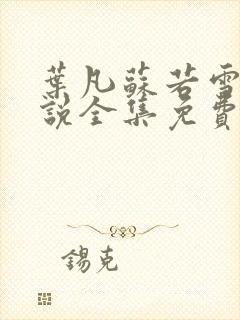 葉凡蘇若雪
說全集免費
錫克